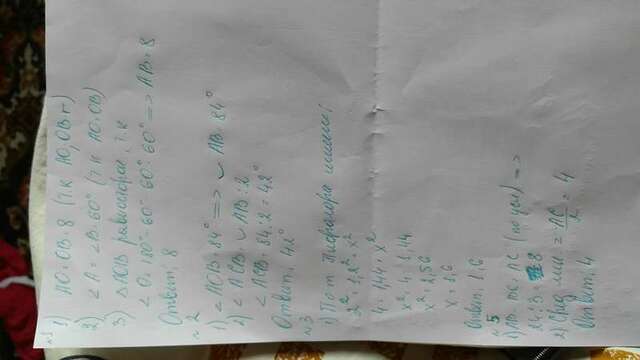 №1
1) AO=OB=8 (т.к AO, OB-r)
2) ∠A=∠B=60° (т.к AO=OB)
3) △AOB равносторон, т.к
∠O=180°-60°-60°=60° => AB=8
Ответ: 8
№2
1) ∠AOB=84° => ◡AB=84°
2) ∠ACB ◡AB:2
∠ACB=84:2=42°
Ответ: 42°
№3
1) По т Пифагора
2²=1,2²+x²
4=1,44+x²
x²=4-1,44
x²=2,56
x=1,6
Ответ: 1,6
№5
1) AB, BC, AC (по усл) =>
2) Сред лин = AC/2 = 4
Ответ: 4